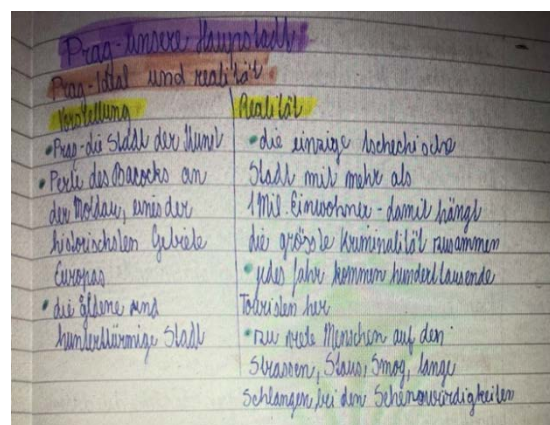 Prag - unsere Haupstadt
Prag - Idal und realität
Vorstellung
• Prag - die Stadt der Kunst
• Perle des Barocks an
der Moldau, eines der
historischsten Gebiete
Europas
• die gldene und
hunderttürmige Stadt
Realität
• die einzige tschechische
Stadt mit mehr als
1 Mil. Einwohner - damit hängt
die grösste Kriminalität zusammen
• jedes Jahr kommen hunderttausende
Touristen her
• zu viele Menschen auf den
Strassen, Staus, Smog, lange
Schlangen bei den Sehenswürdigkeiten